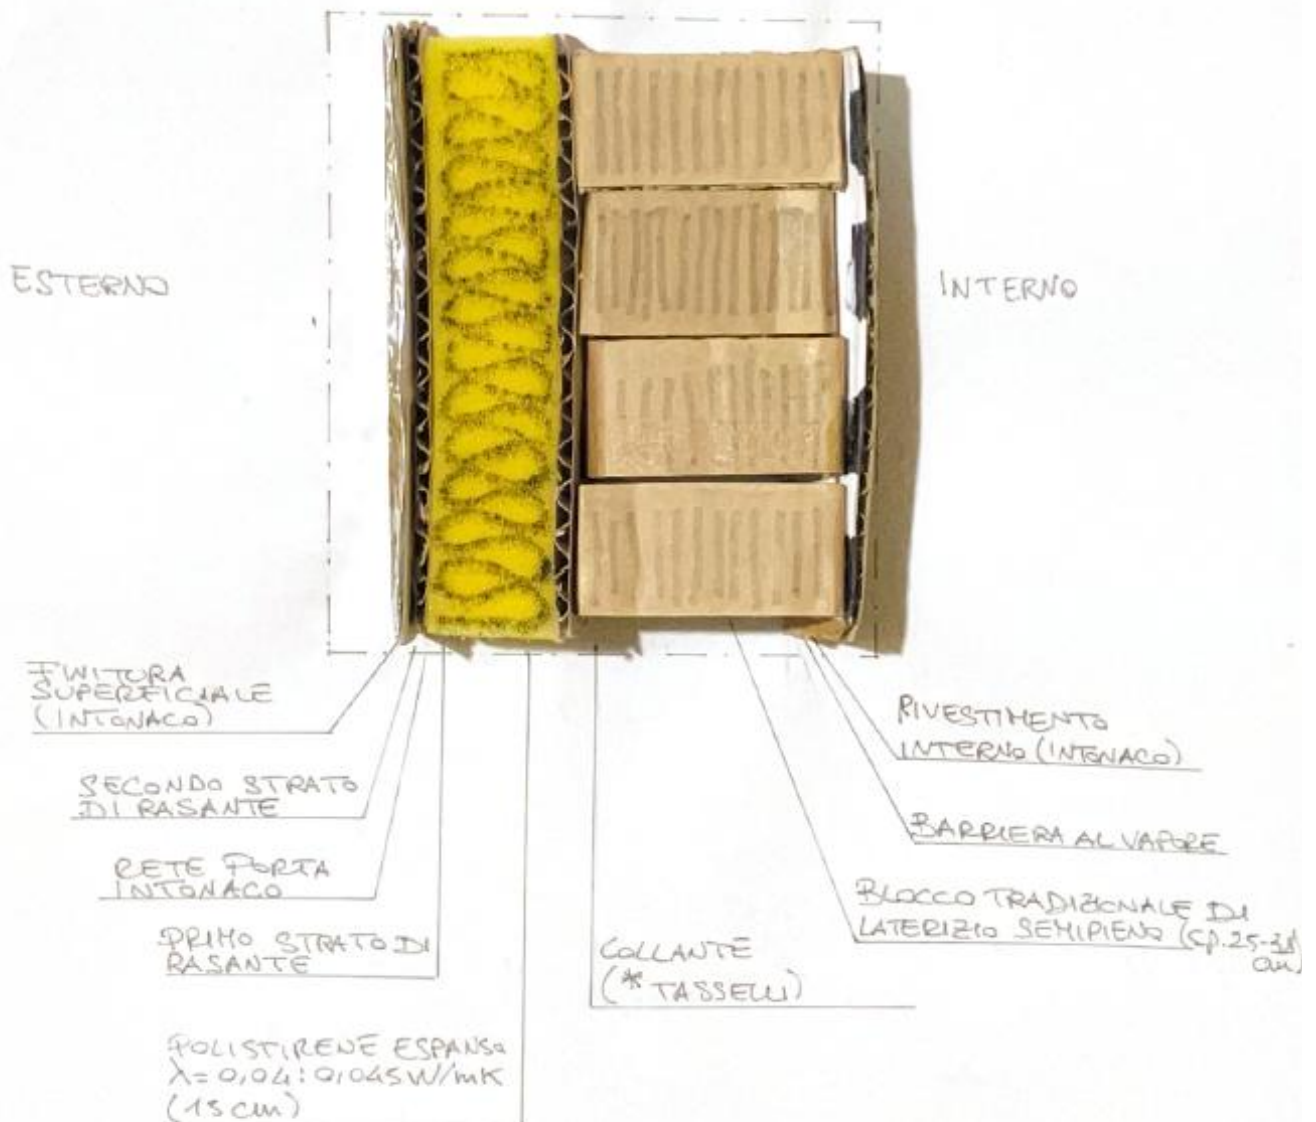 ESTERNO
INTERNO
FINITURA
SUPERFICIALE
(INTONACO)
SECONDO STRATO
DI RASANTE
RETE PORTA
INTONACO
PRIMO STRATO DI
RASANTE
POLISTIRENE ESPANSO
λ= 0,04:0,045W/mK
(15 cm)
COLLANTE
(* TASSELLI)
RIVESTIMENTO
INTERNO (INTONACO)
BARRIERA AL VAPORE
BLOCCO TRADIZIONALE DI
LATERIZIO SEMIPIENO (sp. 25-38
cm)